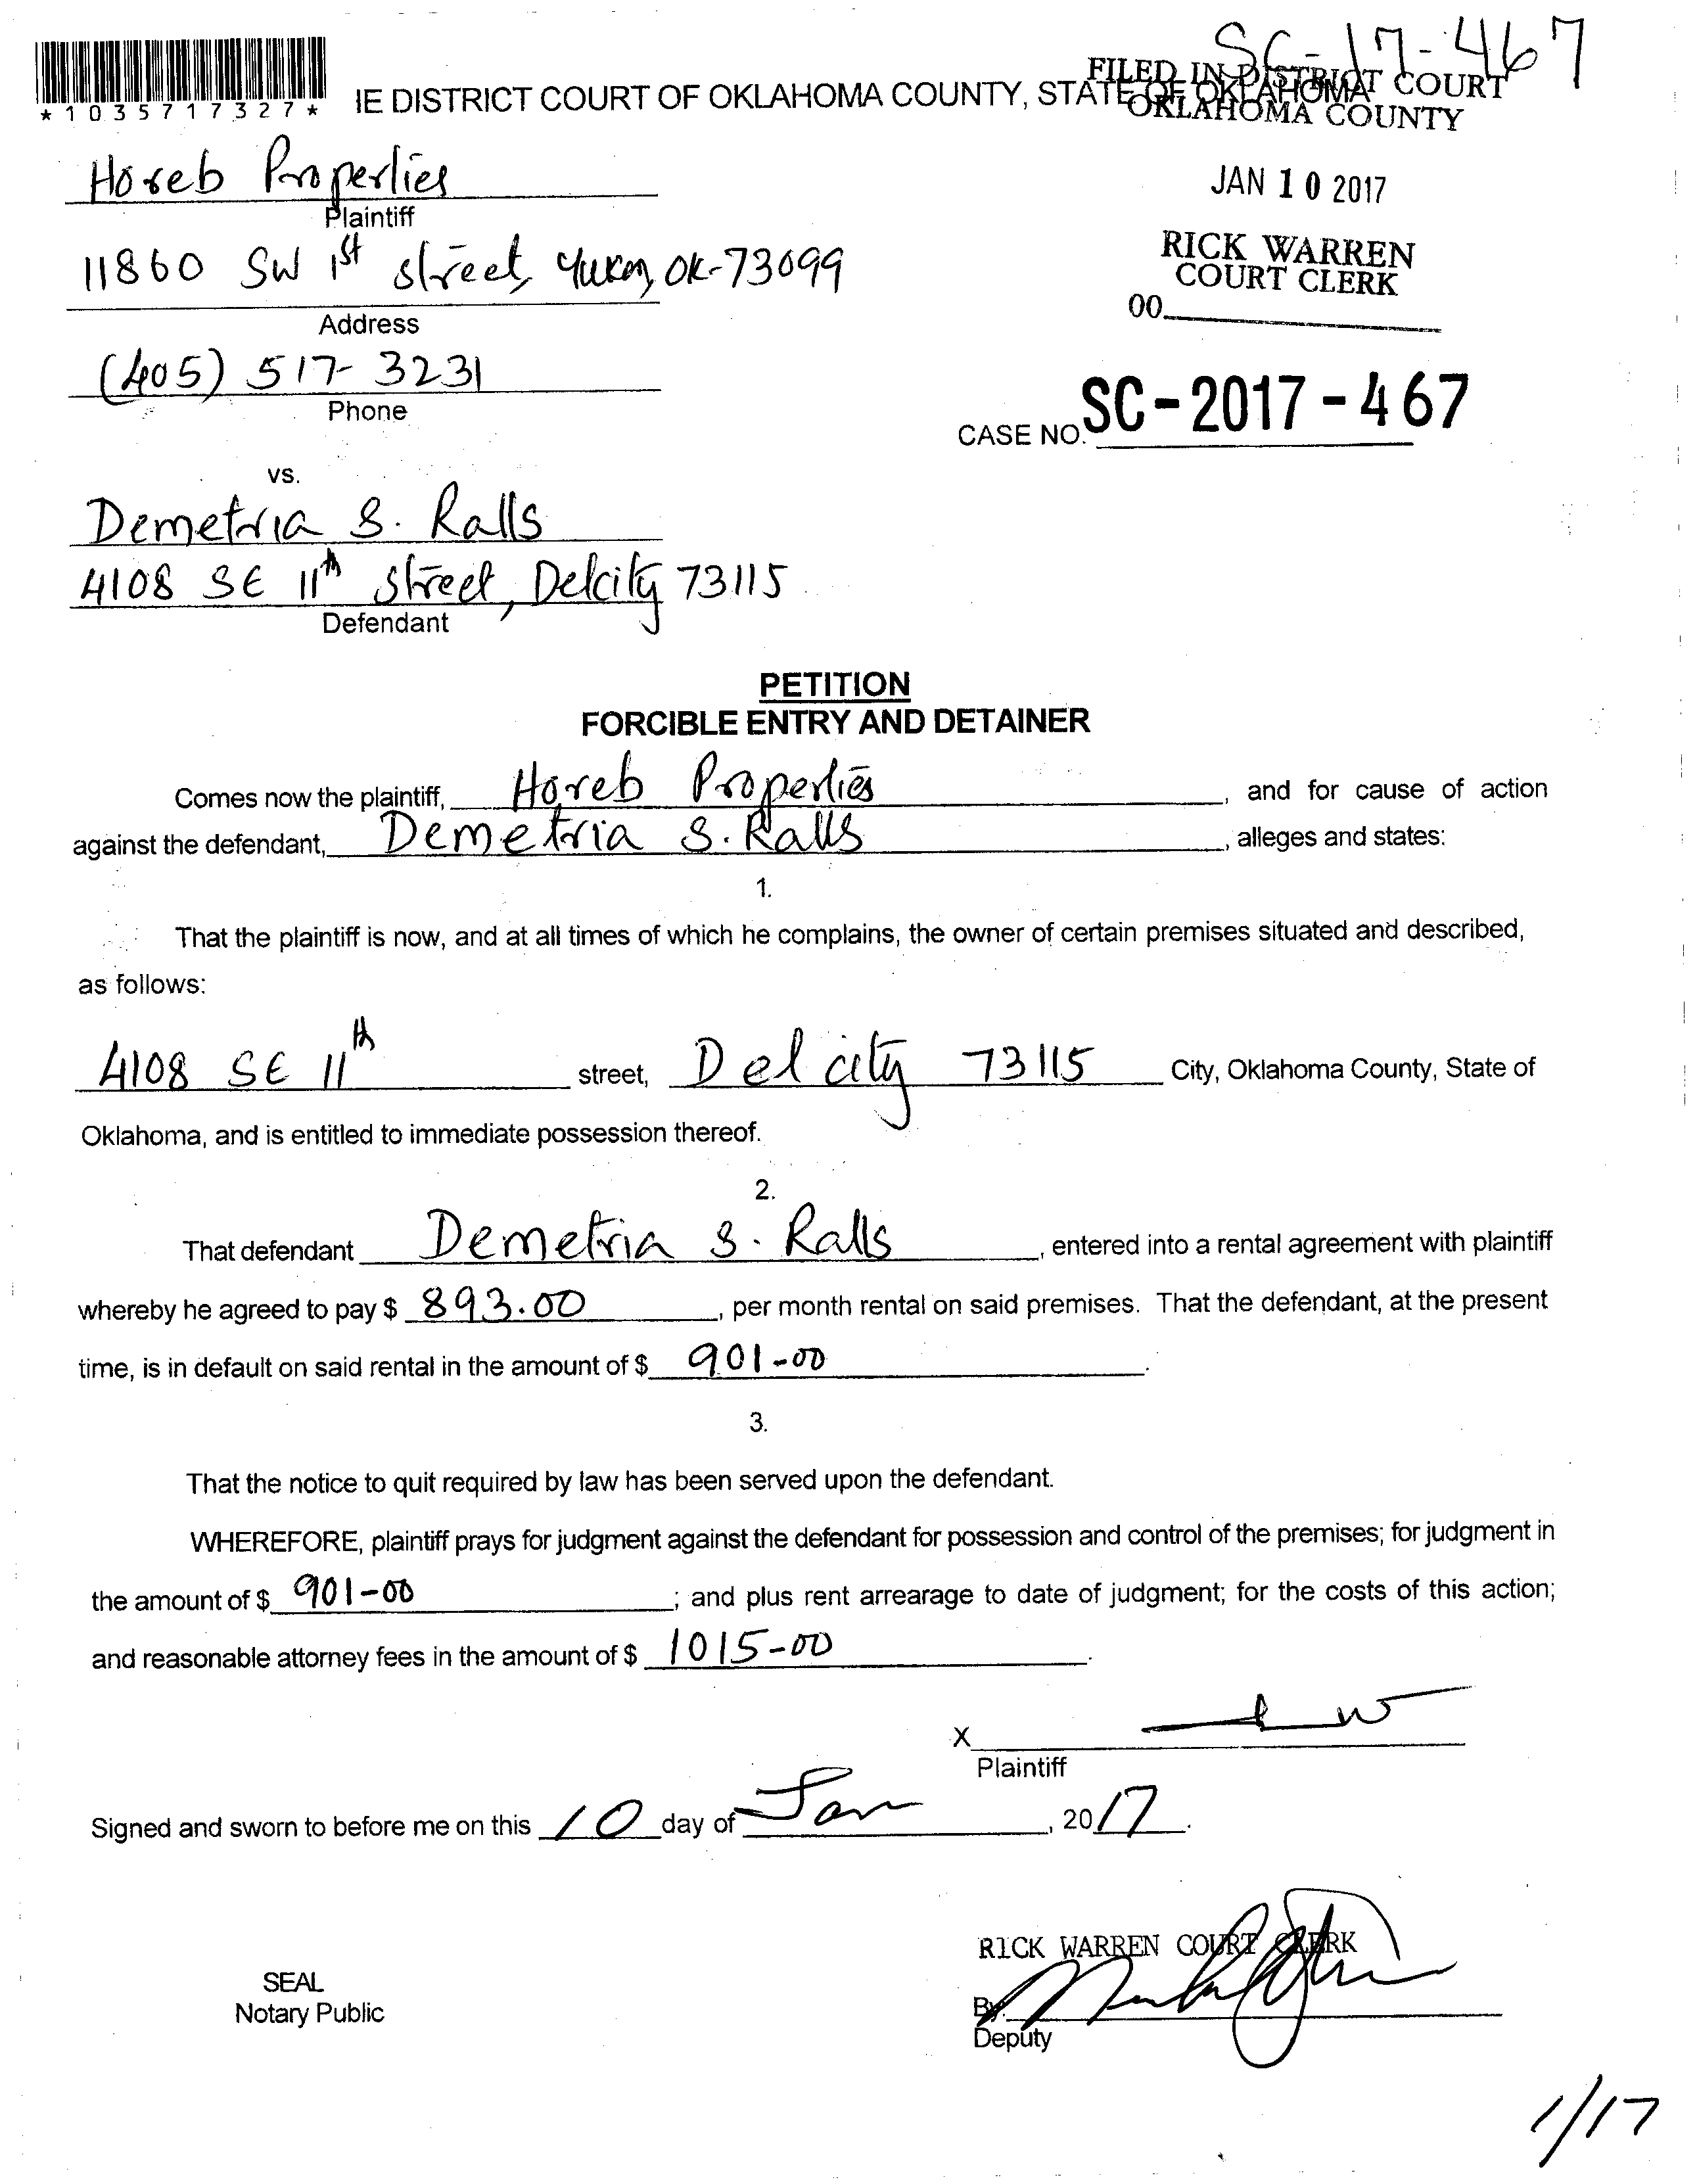 SC-17-467
*1035717327*
IE DISTRICT COURT OF OKLAHOMA COUNTY, STATE OF OKLAHOMA
FILED IN DISTRICT COURT
OKLAHOMA COUNTY
Horeb Properties
Plaintiff
JAN 10 2017
11860 SW 1st street, Yukon, OK-73099
Address
RICK WARREN
COURT CLERK
00
(405) 517-3231
Phone
CASE NO. SC-2017-467
vs.
Demetria S. Ralls
4108 SE 11th street, Delcity 73115
Defendant
PETITION
FORCIBLE ENTRY AND DETAINER
Comes now the plaintiff, Horeb Properties, and for cause of action
against the defendant, Demetria S. Ralls, alleges and states:
1.
That the plaintiff is now, and at all times of which he complains, the owner of certain premises situated and described,
as follows:
4108 SE 11th street, Del city 73115 City, Oklahoma County, State of
Oklahoma, and is entitled to immediate possession thereof.
2.
That defendant Demetria S. Ralls, entered into a rental agreement with plaintiff
whereby he agreed to pay $ 893.00, per month rental on said premises. That the defendant, at the present
time, is in default on said rental in the amount of $ 901-00.
3.
That the notice to quit required by law has been served upon the defendant.
WHEREFORE, plaintiff prays for judgment against the defendant for possession and control of the premises; for judgment in
the amount of $ 901-00; and plus rent arrearage to date of judgment; for the costs of this action;
and reasonable attorney fees in the amount of $ 1015-00.
X
Plaintiff
Signed and sworn to before me on this 10 day of Jan, 2017.
RICK WARREN COURT CLERK
SEAL
Notary Public
By:
Deputy
1/17